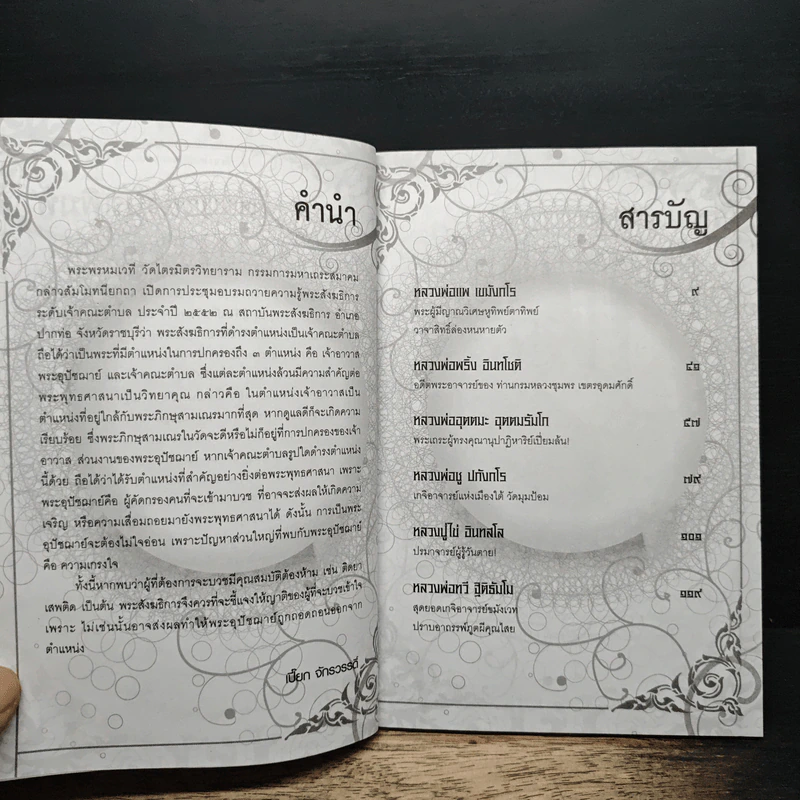 คำนำ
พระพรหมเวที วัดไตรมิตรวิทยาราม กรรมการมหาเถระสมาคม
กล่าวสัมโมทนียกถา เปิดการประชุมอบรมถวายความรู้พระสังฆาธิการ
ระดับเจ้าคณะตำบล ประจำปี ๒๕๕๒ ณ สถาบันพระสังฆาธิการ อำเภอ
ปากท่อ จังหวัดราชบุรีว่า พระสังฆาธิการที่ดำรงตำแหน่งเป็นเจ้าคณะตำบล
ถือได้ว่าเป็นพระที่มีตำแหน่งในการปกครองถึง ๓ ตำแหน่ง คือ เจ้าอาวาส
พระอุปัชฌาย์ และเจ้าคณะตำบล ซึ่งแต่ละตำแหน่งล้วนมีความสำคัญต่อ
พระพุทธศาสนาเป็นวิทยาคุณ กล่าวคือ ในตำแหน่งเจ้าอาวาสเป็น
ตำแหน่งที่อยู่ใกล้กับพระภิกษุสามเณรมากที่สุด หากดูแลดีก็จะเกิดความ
เรียบร้อย ซึ่งพระภิกษุสามเณรในวัดจะดีหรือไม่ก็อยู่ที่การปกครองของเจ้า
อาวาส ส่วนงานของพระอุปัชฌาย์ หากเจ้าคณะตำบลรูปใดดำรงตำแหน่ง
นี้ด้วย ถือได้ว่าได้รับตำแหน่งที่สำคัญอย่างยิ่งต่อพระพุทธศาสนา เพราะ
พระอุปัชฌาย์คือ ผู้คัดกรองคนที่จะเข้ามาบวช ที่อาจจะส่งผลให้เกิดความ
เจริญ หรือความเสื่อมถอยมายังพระพุทธศาสนาได้ ดังนั้น การเป็นพระ
อุปัชฌาย์จะต้องไม่ใจอ่อน เพราะปัญหาส่วนใหญ่ที่พบกับพระอุปัชฌาย์
คือ ความเกรงใจ
ทั้งนี้หากพบว่าผู้ที่ต้องการจะบวชมีคุณสมบัติต้องห้าม เช่น ติดยา
เสพติด เป็นต้น พระสังฆาธิการจึงควรที่จะชี้แจงให้ญาติของผู้ที่จะบวชเข้าใจ
เพราะ ไม่เช่นนั้นอาจส่งผลทำให้พระอุปัชฌาย์ถูกถอดถอนออกจาก
ตำแหน่ง
เปี๊ยก จักรวรรดิ์
สารบัญ
หลวงพ่อแพ เขมังกโร ๙
พระผู้มีญาณวิเศษหูทิพย์ตาทิพย์
วาจาสิทธิ์ล่องหนหายตัว
หลวงพ่อพริ้ง อินทโชติ ๔๑
อดีตพระอาจารย์ของ ท่านกรมหลวงชุมพร เขตรอุดมศักดิ์
หลวงพ่ออุตตมะ อุตตมรัมโภ ๕๗
พระเถระผู้ทรงคุณานุปาฏิหาริย์เปี่ยมล้น!
หลวงพ่อชู ปภังกโร ๗๙
เกจิอาจารย์แห่งเมืองใต้ วัดมุมป้อม
หลวงปู่ไข่ อินทสโล ๑๐๑
ปรมาจารย์ผู้รู้วันตาย!
หลวงพ่อทวี ฐิติธัมโม ๑๑๙
สุดยอดเกจิอาจารย์ขมังเวท
ปราบอาถรรพ์ภูตผีคุณไสย